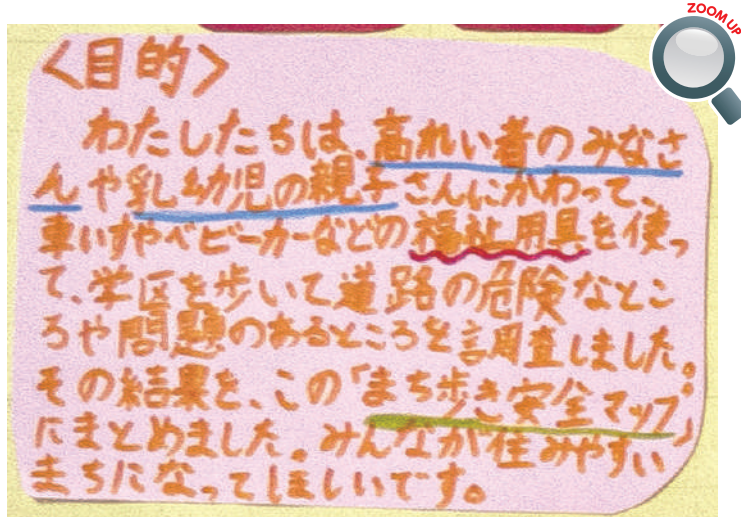 ZOOM UP
<目的>
わたしたちは、高れい者のみなさ
んや乳幼児の親子さんにかわって、
車いすやベビーカーなどの福祉用具を使っ
て、学区を歩いて道路の危険なとこ
ろや問題のあるところを調査しました。
その結果を、この「まち歩き安全マップ」
にまとめました。みんなが住みやすい
まちになってほしいです。